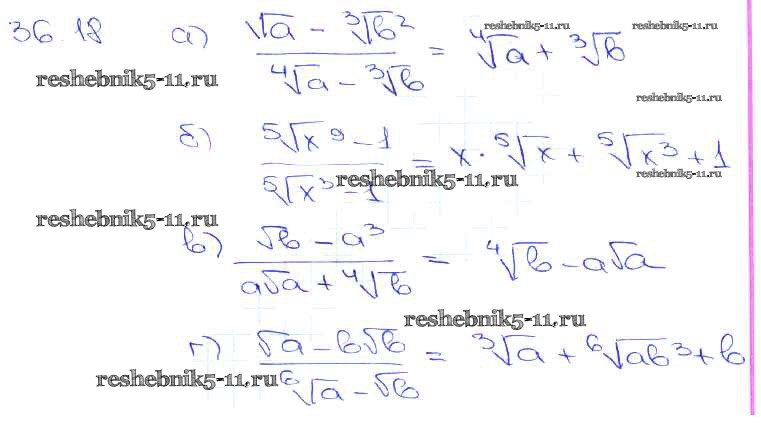 36.18 а) (√a − ∛b²) / (∜a − ∛b) = ∜a + ∛b
reshebnik5-11.ru reshebnik5-11.ru
reshebnik5-11.ru
reshebnik5-11.ru
б) (⁵√x⁹ − 1) / (⁵√x³ − 1) = x · ⁵√x + ⁵√x³ + 1
reshebnik5-11.ru reshebnik5-11.ru
reshebnik5-11.ru
в) (√b − a³) / (a√a + ∜b) = ∜b − a√a
reshebnik5-11.ru
г) (√a − b√b) / (⁶√a − √b) = ∛a + ⁶√ab³ + b
reshebnik5-11.ru